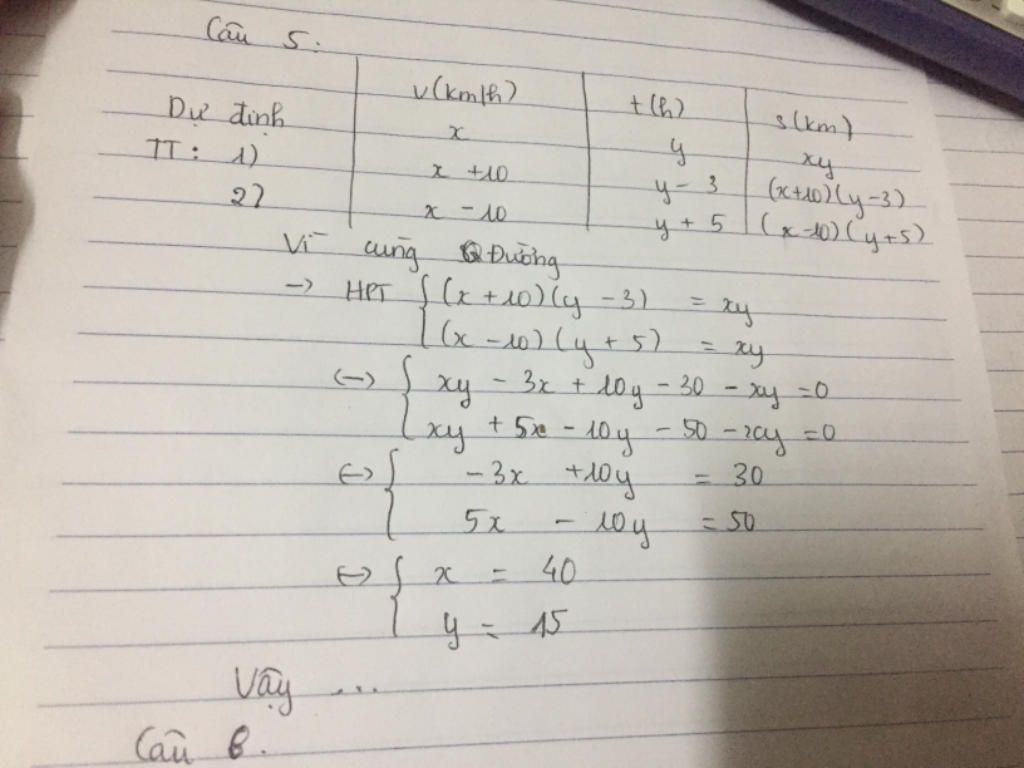 Câu 5:
v(km/h) t(h) s(km)
Dự định x y xy
TT: 1) x + 10 y - 3 (x+10)(y-3)
2) x - 10 y + 5 (x-10)(y+5)
Vì cùng QĐường
→ HPT { (x + 10)(y - 3) = xy
(x - 10)(y + 5) = xy
↔ { xy - 3x + 10y - 30 - xy = 0
xy + 5x - 10y - 50 - xy = 0
↔ { -3x + 10y = 30
5x - 10y = 50
↔ { x = 40
y = 15
Vậy ...
Câu 6.